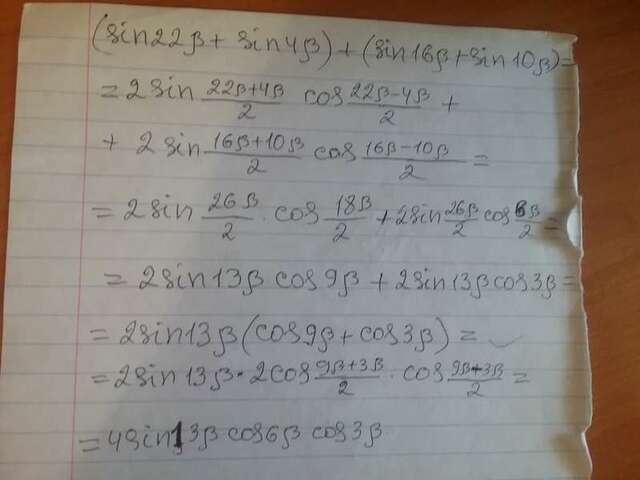 (sin22β + sin4β) + (sin16β + sin10β) =
= 2sin (22β+4β)/2 cos (22β−4β)/2 +
+ 2sin (16β+10β)/2 cos (16β−10β)/2 =
= 2sin 26β/2 · cos 18β/2 + 2sin 26β/2 cos 6β/2 =
= 2sin13β cos9β + 2sin13βcos3β =
= 2sin13β(cos9β + cos3β) =
= 2sin13β · 2cos (9β+3β)/2 · cos (9β−3β)/2 =
= 4sin13β cos6β cos3β